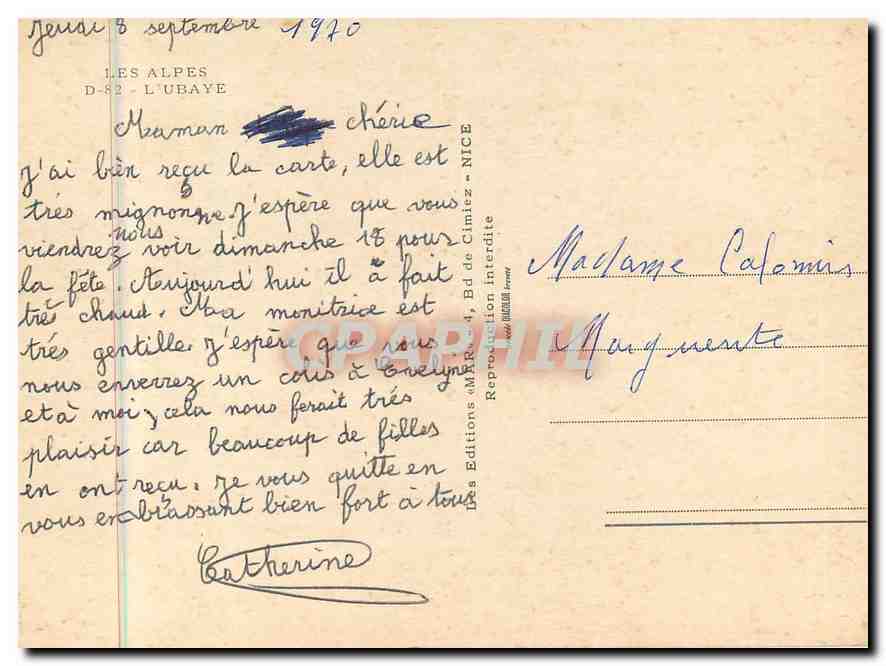 Jeudi 8 septembre 1970
LES ALPES
D-82 - L'UBAYE
Maman chérie
J'ai bien reçu la carte, elle est
très mignonne. J'espère que vous
viendrez nous voir dimanche 18 pour
la fête. Aujourd'hui il a fait
très chaud. Ma monitrice est
très gentille. J'espère que vous
nous enverrez un colis à Evelyne
et à moi, cela nous ferait très
plaisir car beaucoup de filles
en ont reçu. Je vous quitte en
vous embrassant bien fort à tous
Catherine
Les Editions «MAR 4, Bd de Cimiez - NICE
Reproduction interdite
DIACOLOR breveté
Madame
Marguerite
CPAPHIL